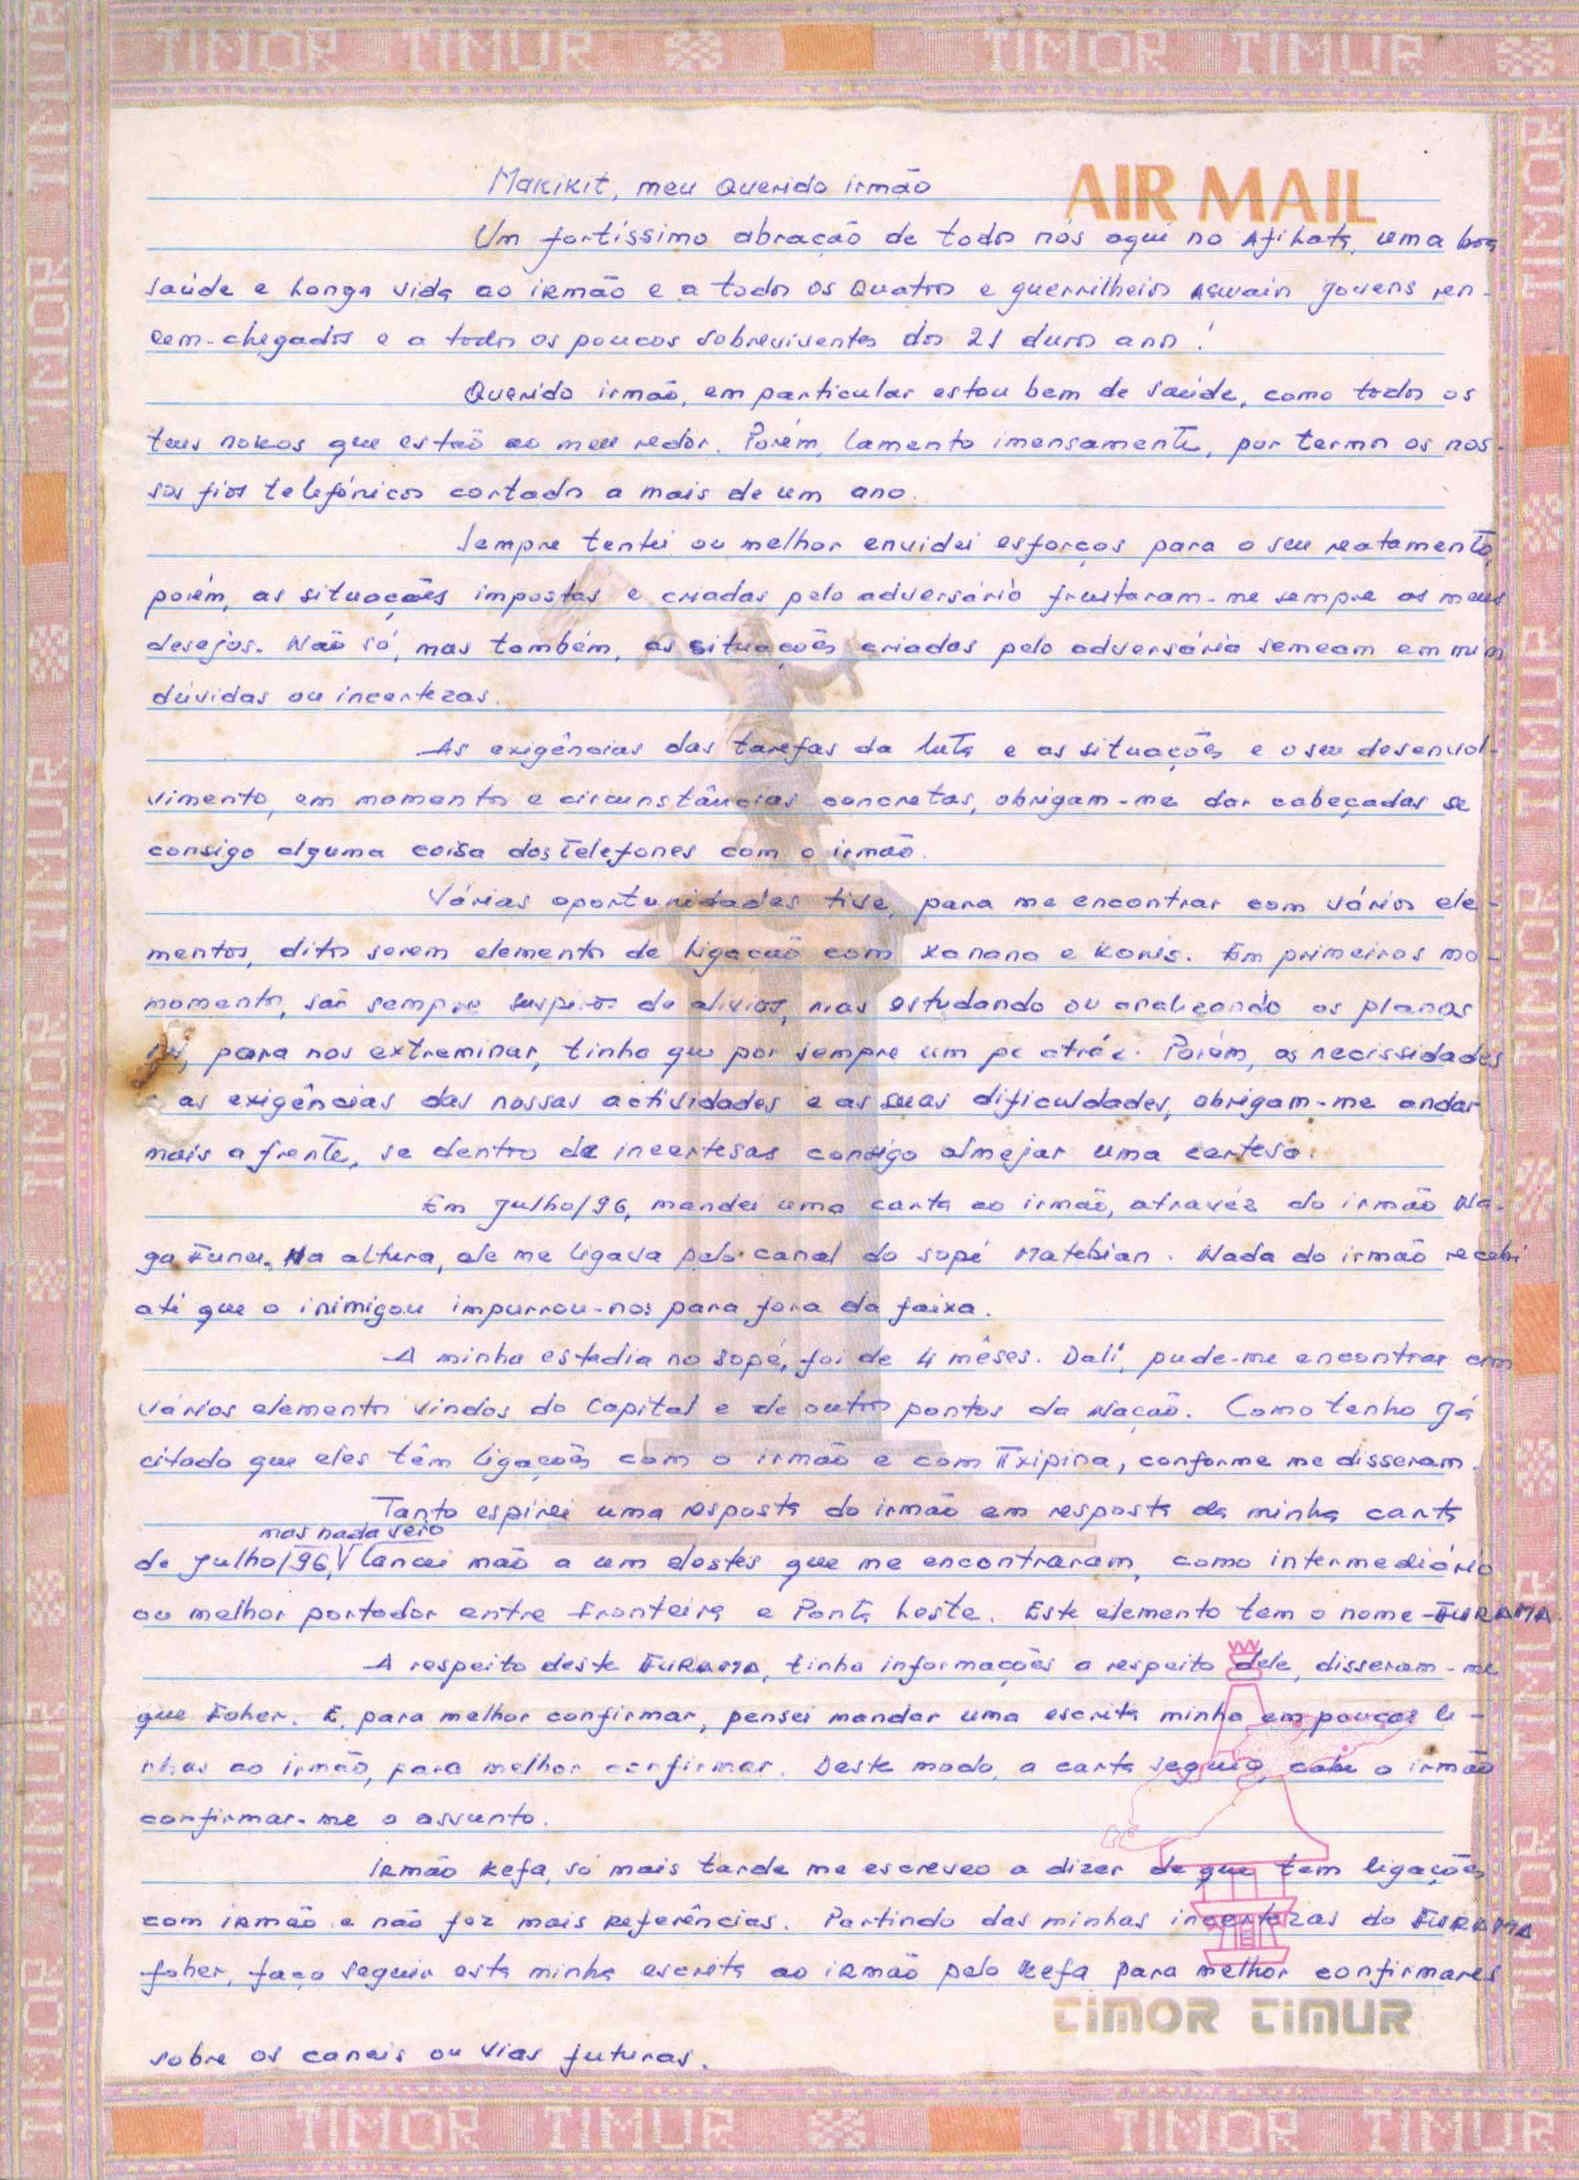 TIMOR TIMUR TIMOR TIMUR
AIR MAIL
Makikit, meu Querido irmão
Um fortíssimo abração de todos nós aqui no uma boa
saúde e longa vida ao irmão e a todos os Quatros e guerrilheiros Aswain jovens ren-
cem-chegados e a todos os poucos sobreviventes dos 21 duros anos!
Querido irmão, em particular estou bem de saúde, como todos os
teus nokos que estão ao meu redor. Porém, lamento imensamente, por termos os nos-
sos fios telefónicos cortados a mais de um ano.
Sempre tentei ou melhor envidei esforços para o seu reatamento,
porém, as situações impostas e criadas pelo adversário frustaram-me sempre os meus
desejos. Não só, mas também, as situações criadas pelo adversário semeam em mim
dúvidas ou incertezas.
As exigências das tarefas da luta e as situações e o seu desenvol-
vimento, em momentos e circunstâncias concretas, obrigam-me dar cabeçadas se
consigo alguma coisa dos telefones com o irmão.
Várias oportunidades tive, para me encontrar com vários ele-
mentos, ditos serem elementos de ligação com Xanana e Konis. Em primeiros mo-
momentos, são sempre suspiros de alívios, mas estudando ou analiçando os planos
para nos extreminar, tinha que por sempre um pé atráz. Porém, as necissidades
e as exigências das nossas actividades e as suas dificuldades, obrigam-me andar
mais a frente, se dentro de incertesas consigo almejar uma certesa.
Em Julho/96, mandei uma carta ao irmão, atravéz do irmão Na-
ga Funu. Na altura, ele me ligava pelo canal do sopé Matebian. Nada do irmão recebi
até que o inimigou impurrou-nos para fora da faixa.
A minha estadia no sopé, foi de 4 mêses. Dalí, pude-me encontrar com
vários elementos vindos do Capital e de outros pontos da Nação. Como tenho já
citado que eles têm ligações com o irmão e com Txipina, conforme me disseram.
Tanto espirei uma resposta do irmão em resposta da minha carta
mas nada veio
de Julho/96, V lancei mão a um destes que me encontraram, como intermediário
ou melhor portador entre Fronteira e Ponta Leste. Este elemento tem o nome - FURAMA.
A respeito deste FURAMA, tinha informações a respeito dele, disseram-me
que Foher. E, para melhor confirmar, pensei mandar uma escrita minha em poucas li-
nhas ao irmão, para melhor confirmar. Deste modo, a carta seguiu, cabe o irmão
confirmar-me o assunto.
Irmão Kefa, só mais tarde me escreveo a dizer de que tem ligações
com irmão e não fez mais referências. Partindo das minhas incertezas do FURAMA
foher, faço seguir esta minha escrita ao irmão pelo Kefa para melhor confirmares
TIMOR TIMUR
sobre os canais ou vias futuras.
TIMOR TIMUR TIMOR TIMUR